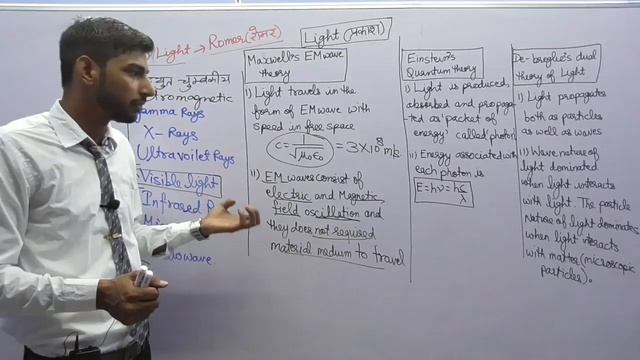 Light → Romer (रोमर)
Light (प्रकाश)
चुम्बकीय
tromagnetic
amma Rays
X- Rays
Ultravoilet Rays
Visible light
Infrared
Maxwell's EM wave
theory
i) Light travels in the
form of EM wave with
speed in free space
C = 1/√μ₀ε₀ = 3×10⁸ m/s
ii) EM waves consist of
electric and Magnetic
field oscillation and
they does not required
material medium to travel
Einstein's
Quantum theory
i) Light is produced,
absorbed and propaga-
ted as packet of
energy called photon
ii) Energy associated with
each photon is
E = hν = hc/λ
De-broglie's dual
theory of Light
i) Light propagates
both as particles
as well as waves
ii) Wave nature of
light dominated
when light interacts
with light. The particle
Nature of light dominates
when light interacts
with matter (microscopic
particles).